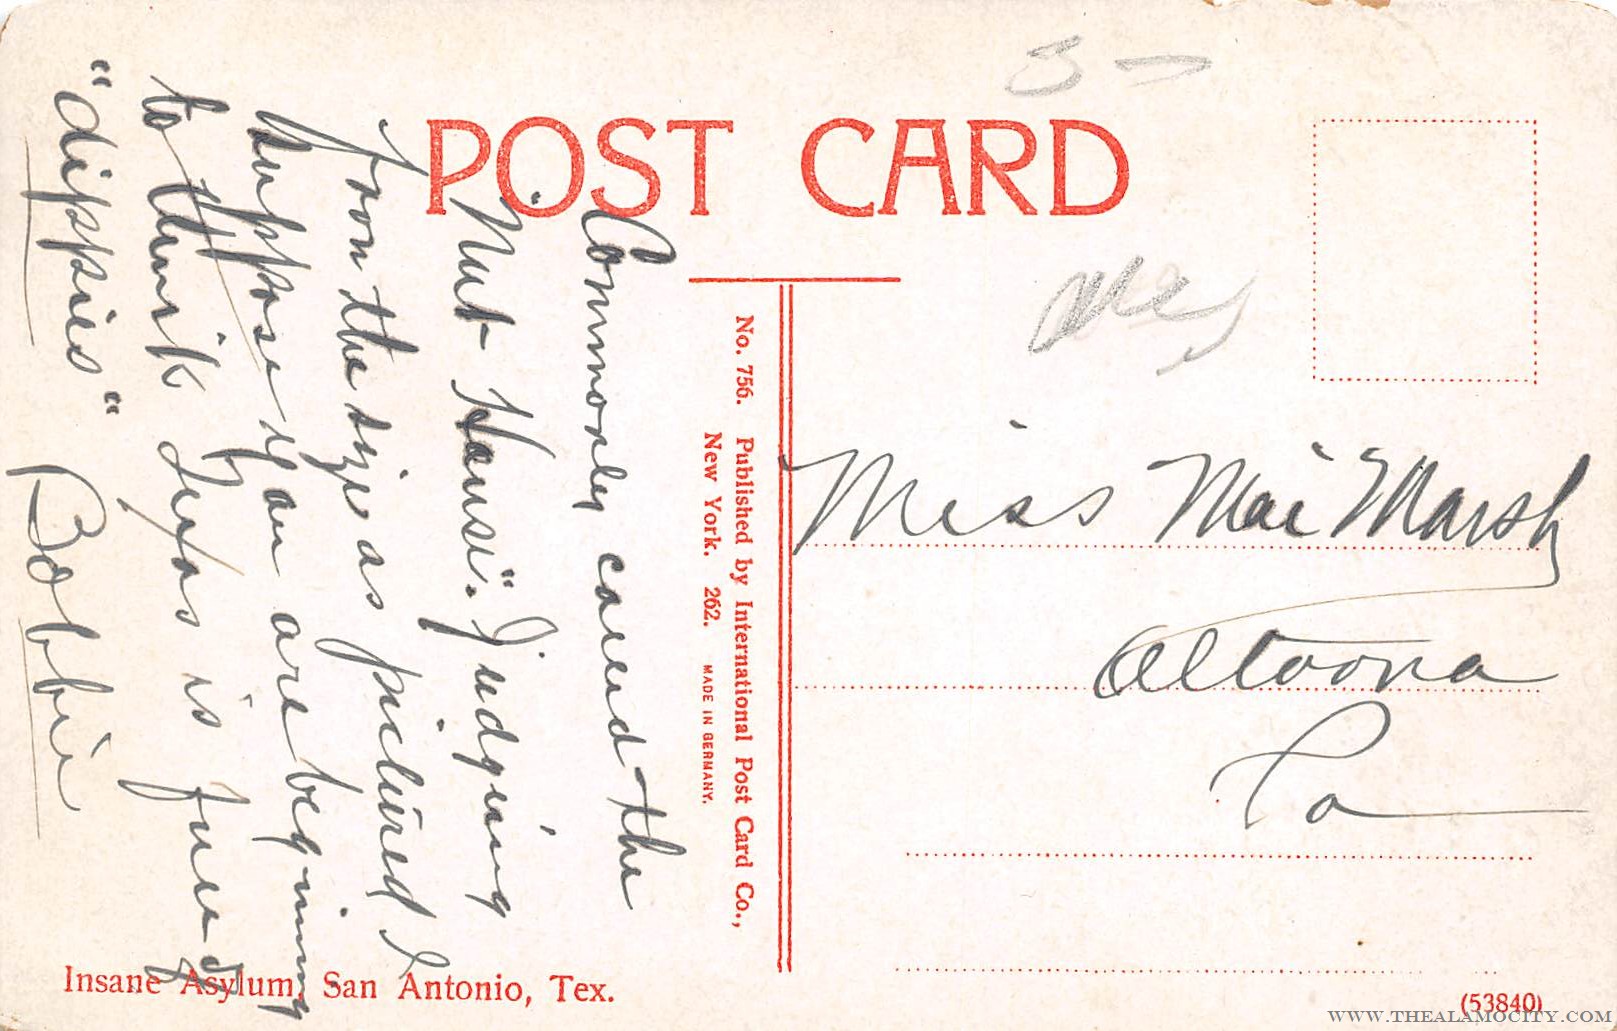 POST CARD
Commonly called the
"Nut House". Judging
from the size as pictured I
suppose you are beginning
to think Texas is full of
"dippies"
Bobbie
No. 756. Published by International Post Card Co.,
New York. 262. MADE IN GERMANY.
Miss Mai Marsh
Altoona
Pa
Insane Asylum, San Antonio, Tex.
(53840)
WWW.THEALAMOCITY.COM